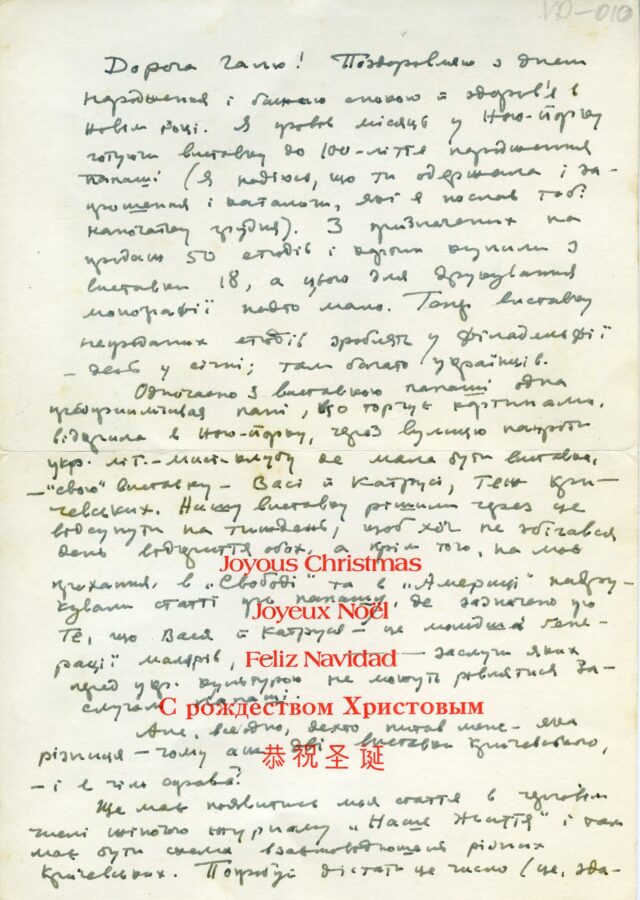 VD-010
Дорога Галю! Поздоровляю з днем
народження і бажаю спокою й здоров'я в
новім році. Я провів місяць у Ню-Йорку
готуючи виставку до 100-ліття народження
папаші (Я надіюсь, що ти одержала і за-
прошення і каталоги, які я послав тобі
напочатку грудня). З призначених на
продаж 50 етюдів і картин купили з
виставки 18, а цього для друкування
монографії надто мало. Тепер виставку
непроданих етюдів зроблять у Філадельфії
- десь у січні; там багато українців.
Одночасно з виставкою папаші одна
предприимливая пані, що торгує картинами,
відкрила в Ню-Йорку, через вулицю напроти
укр. літ.-мист. клубу де мала бути виставка,
- "свою" виставку - Васі й Катрусі, теж Кри-
чевських. Нашу виставку рішили через це
відсунути на тиждень, щоб хоч не збігався
день відкриття обох, а крім того, на моє
Joyous Christmas
прохання, в "Свободі" та в "Америці" надру-
кували статті про папашу, де зазначено про
Joyeux Noël
те, що Вася й Катруся - це молодша гене-
рації малярів, заслуги яких
Feliz Navidad
перед укр. культурою не можуть рівнятися за-
слугам папаші.
С рождеством Христовым
Але, все одно, дехто питав мене - яка
різниця - чому аж дві виставки Кричевського,
恭祝圣诞
- і в чім справа?
Ще має появитись моя стаття в черговім
числі жіночого журналу "Наше Життя" і там
має бути схема взаємовідношення різних
Кричевських. Попробуй дістати це число (це, зда-